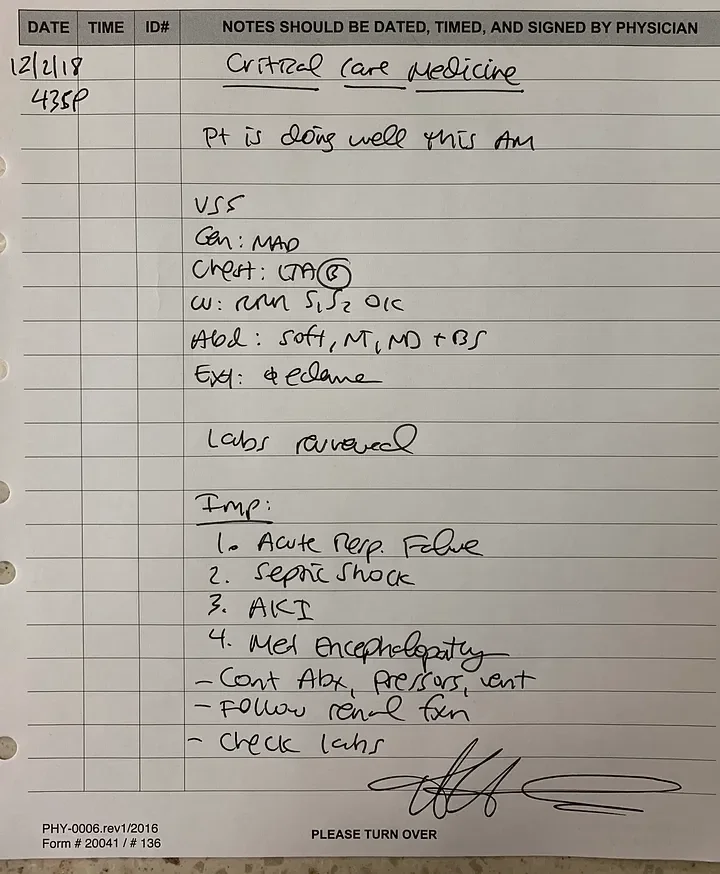 DATE TIME ID# NOTES SHOULD BE DATED, TIMED, AND SIGNED BY PHYSICIAN
12/2/18 Critical Care Medicine
435P
Pt is doing well this AM
VSS
Gen: NAD
Chest: CTA Ⓑ
CV: RRR S1S2 OK
Abd: soft, NT, ND + BS
Ext: φ edema
Labs reviewed
Imp:
1. Acute Resp. Failure
2. Septic Shock
3. AKI
4. Met Encephalopathy
- Cont Abx, pressors, vent
- Follow renal fxn
- Check labs
PHY-0006.rev1/2016
Form # 20041 / # 136
PLEASE TURN OVER